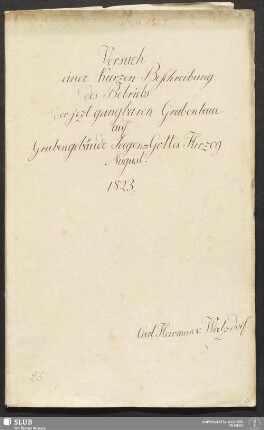 Versuch
einer kurzen Beschreibung
des Betriebs
der jezt gangbaren Grubenbaue
auf
Grubengebäude Seegen-Gottes Herzog
August.
1823.
Carl Herrmann v. Watzdorf.
25.
SLUB